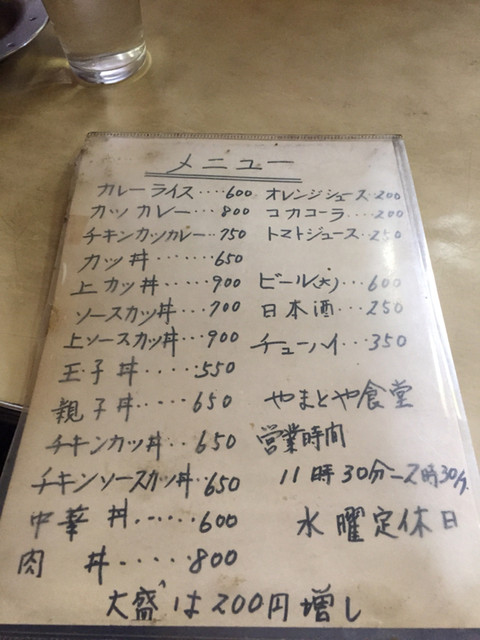 メニュー
カレーライス‥‥600
カツカレー‥‥800
チキンカツカレー‥750
カツ丼‥‥‥650
上カツ丼‥‥‥900
ソースカツ丼‥‥700
上ソースカツ丼‥‥900
玉子丼‥‥‥550
親子丼‥‥‥650
チキンカツ丼‥‥650
チキンソースカツ丼‥650
中華丼‥‥‥600
肉丼‥‥‥800
オレンジジュース‥200
コカコーラ‥‥200
トマトジュース‥250
ビール(大)‥‥600
日本酒‥‥250
チューハイ‥‥350
やまとや食堂
営業時間
11時30分–2時30分
水曜定休日
大盛は200円増し